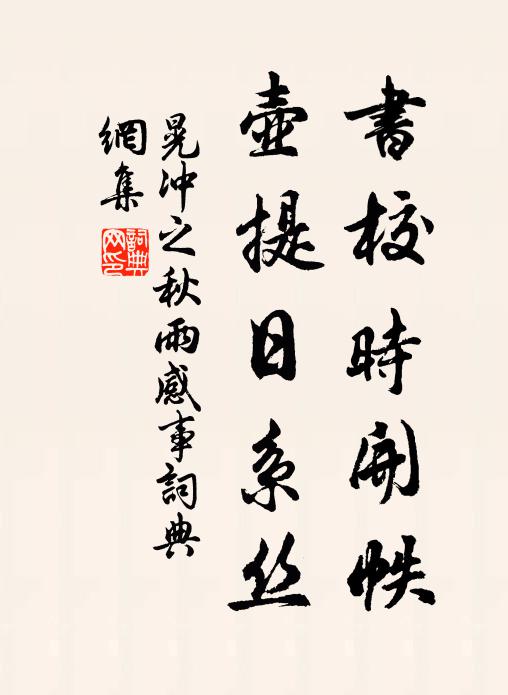 書校時開帙
壺提日系丝
晁沖之秋雨感事詞典
網集
詞典網印